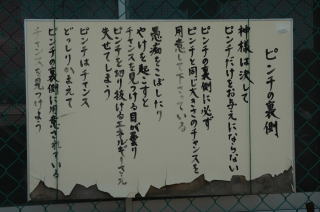 ピンチの裏側
神様は決して
ピンチだけをお与えにならない
ピンチの裏側に必ず
ピンチと同じ大きさのチャンスを
用意して下さっている
愚痴をこぼしたり
やけを起こすと
チャンスを見つける目が曇り
ピンチを切り抜けるエネルギーさえ
失せてしまう
ピンチはチャンス
どっしりかまえて
ピンチの裏側に用意されている
チャンスを見つけよう